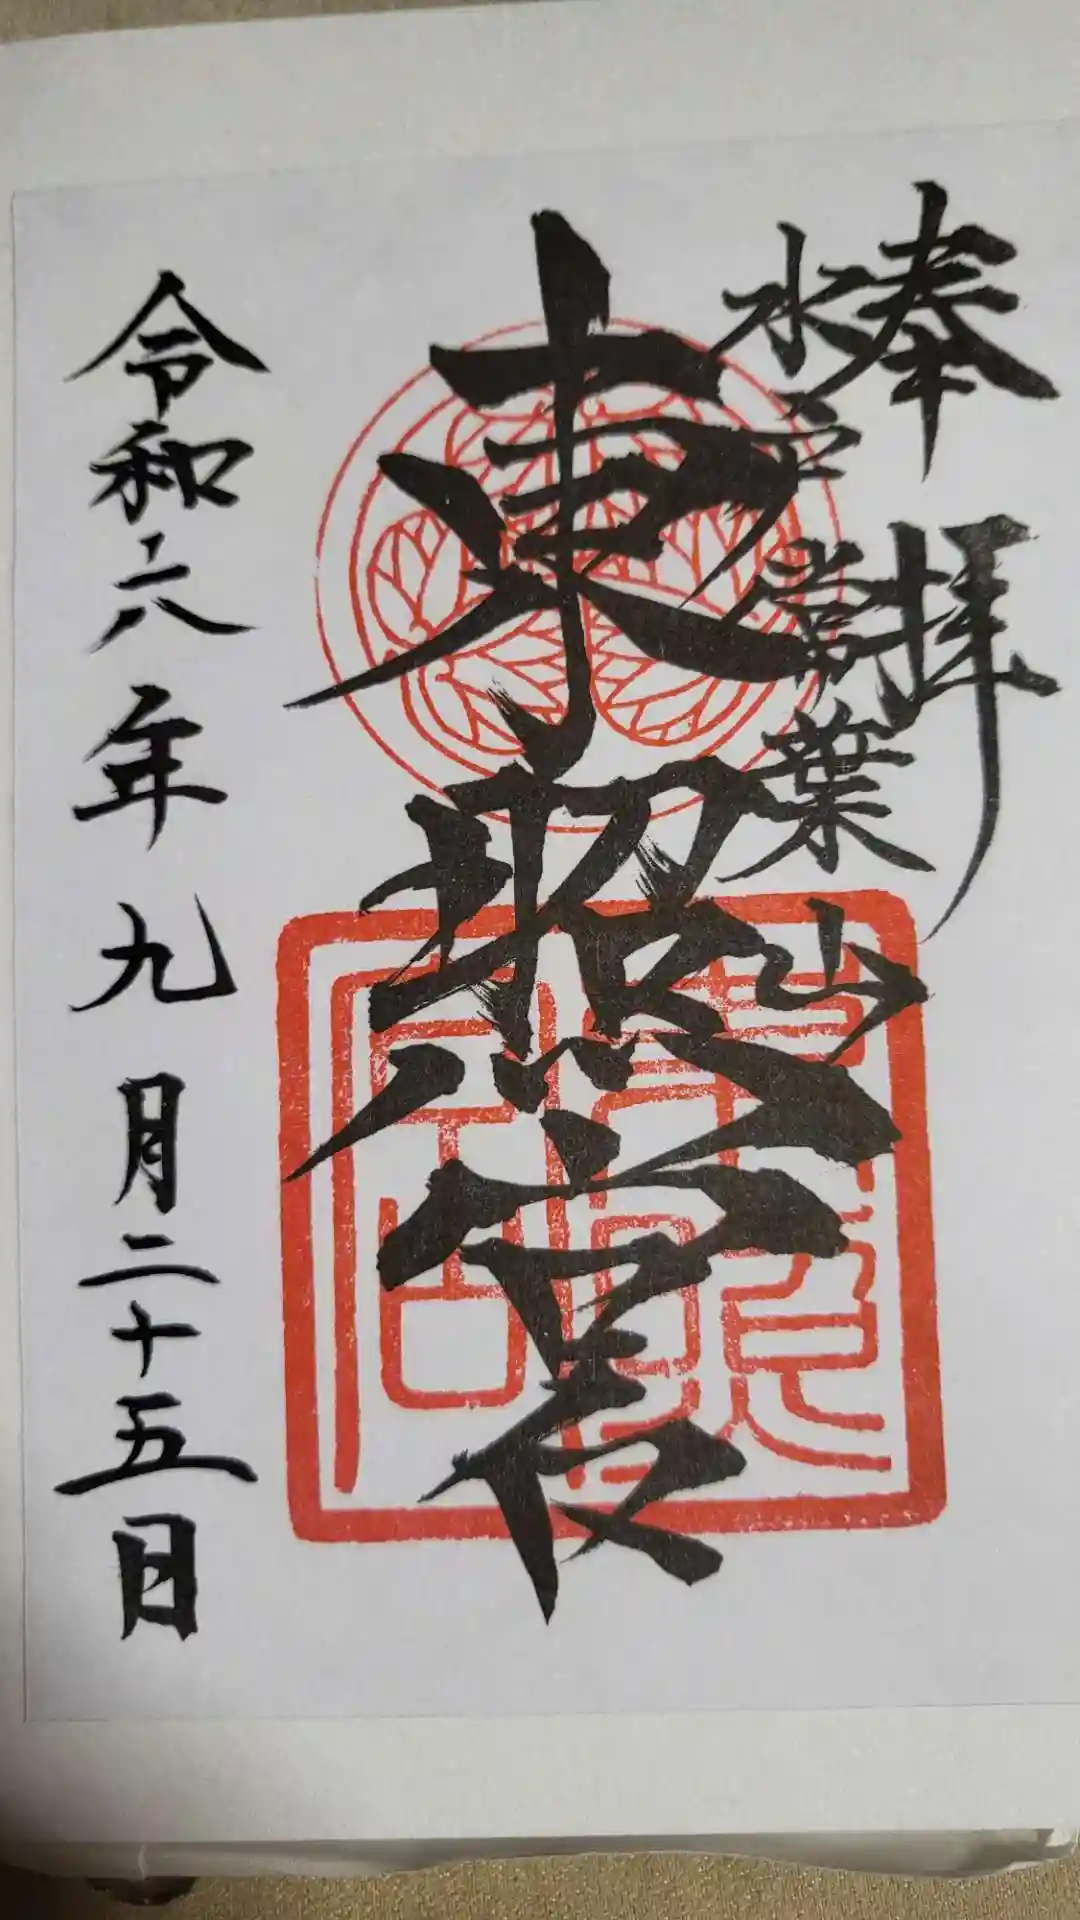 奉拝
水戸常葉山
東照宮
令和六年九月二十五日